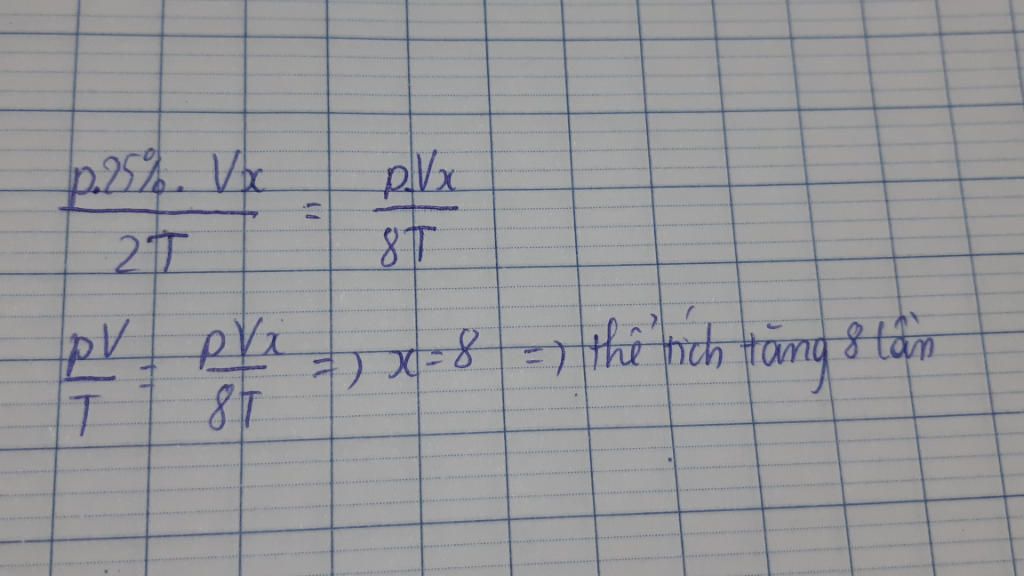 p.25%. Vx / 2T = p.Vx / 8T
pV / T = pVx / 8T => x = 8 => thể tích tăng 8 lần